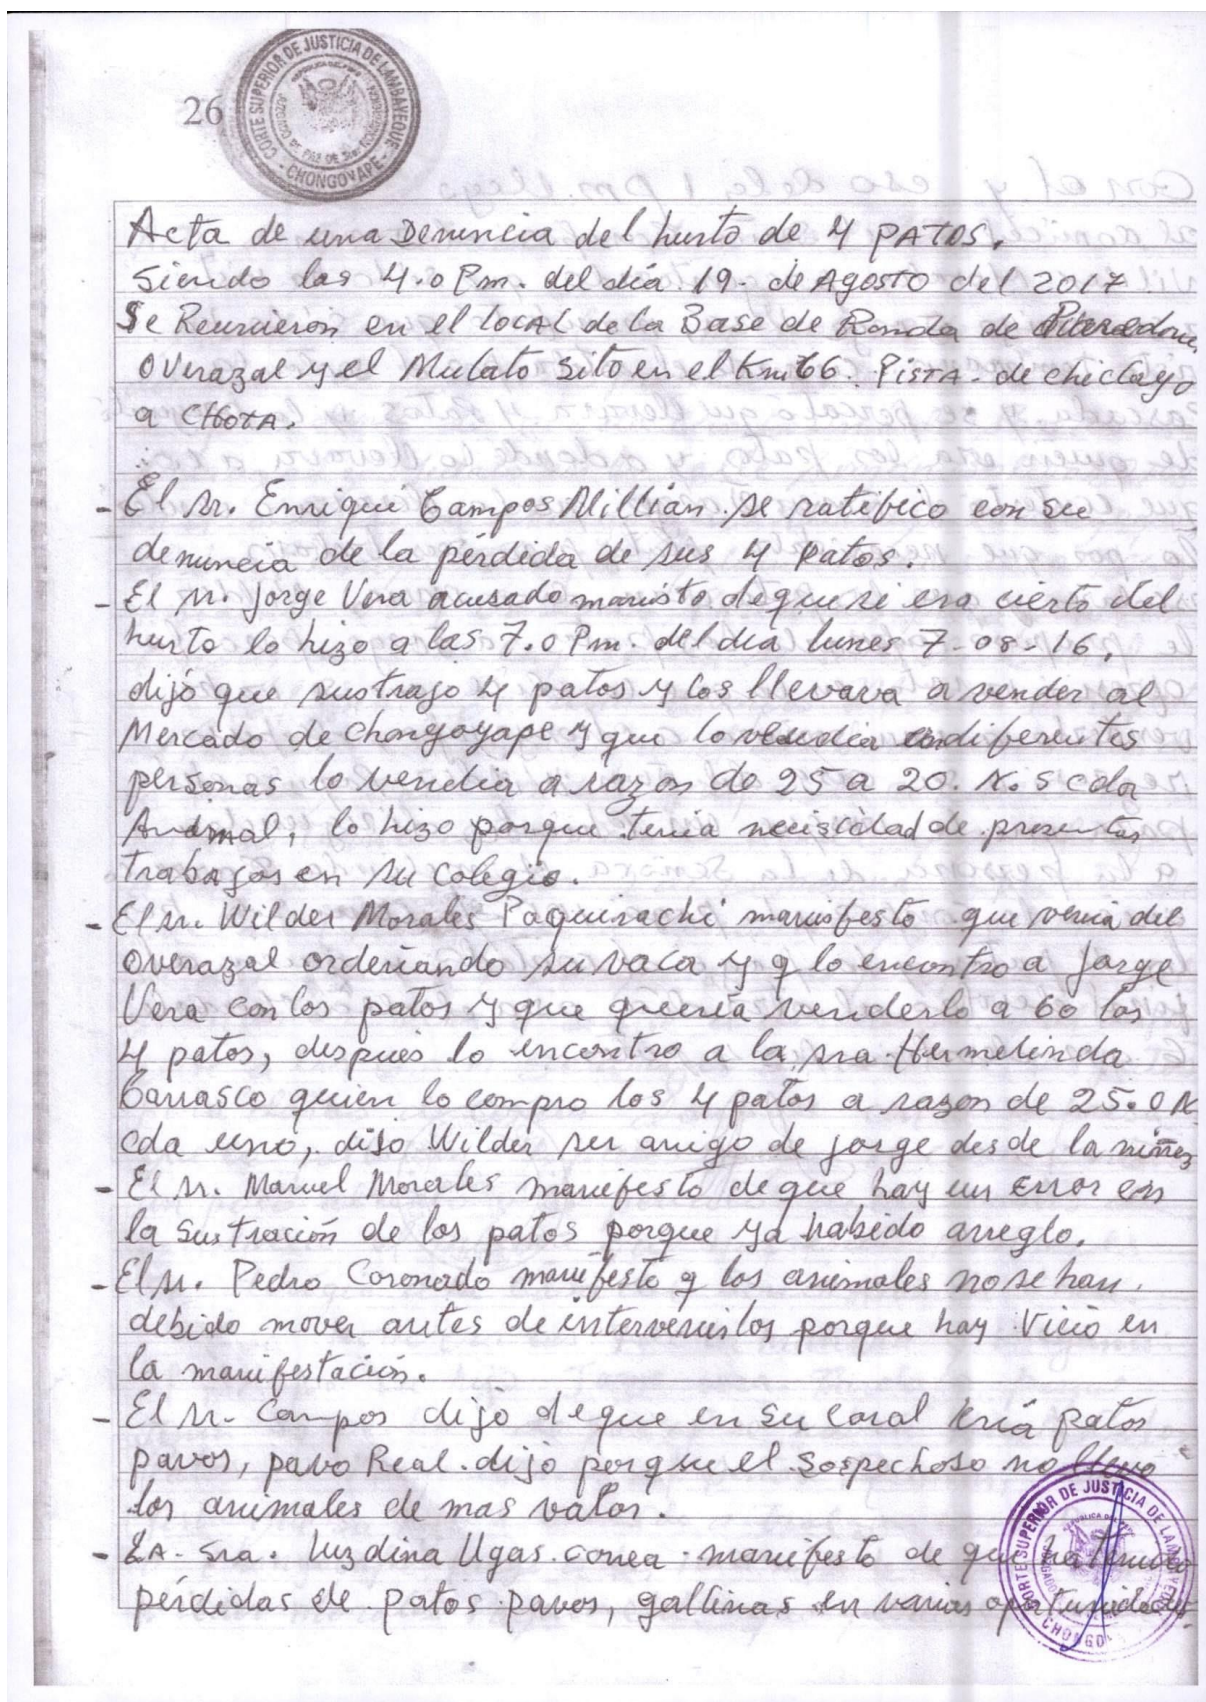 26
CORTE SUPERIOR DE JUSTICIA DE LAMBAYEQUE
- CHONGOYAPE -
Acta de una Denuncia del hurto de 4 PATOS.
Siendo las 4.0 Pm. del día 19. de AGOSTO del 2017
Se Reunieron en el local de la Base de Ronda de
Overazal y el Mulato Sito en el Km 66. PISTA - de chiclayo
a CHOTA.
- El Sr. Enrique Campos Millian se ratifico con su
denuncia de la pérdida de sus 4 patos.
- El sr. Jorge Vera acusado manisto de que si era cierto del
hurto lo hizo a las 7.0 Pm. del dia lunes 7-08-16,
dijo que sustrajo 4 patos y los llevava a vender al
Mercado de chongoyape y que lo vendia diferentes
personas lo vendia a razon de 25 a 20. N. S cda
Animal, lo hizo porque tenia necisidad de presentar
trabajos en su colegio.
- El sr. Wilder Morales Paquirachi manisfesto que venia del
Overazal ordeñando su vaca y q lo encontro a Jorge
Vera con los patos y que queria venderlo a 60 los
4 patos, despues lo encontro a la sra. Hermelinda
Carrasco quien lo compro los 4 patos a razon de 25.0 N
cda uno, dijo Wilder ser amigo de jorge desde la niñez
- El Sr. Manuel Morales manifesto de que hay un Error en
la Sustración de los patos porque ya habido arreglo.
- El sr. Pedro Coronado manifesto q los animales no se han
debido mover antes de intervenirlos porque hay Vicio en
la manifestación.
- El Sr. Campos dijo de que en su coral tenia patos
pavos, pavo Real. dijo porque el Sospechoso no llevo
los animales de mas valor.
- LA. Sra. Luzdina Ugas. correa. manifesto de que ha tenido
pérdidas de patos pavos, gallinas en varias oportunidades
CORTE SUPERIOR DE JUSTICIA DE LAMBAYEQUE